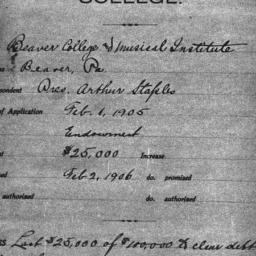 COLLEGE.
Beaver College & Musical Institute
Beaver, Pa.
ondent Pres. Arthur Staples
of Application Feb. 6, 1905
Endowment
$25,000 Increase
Feb 2, 1906 do. promised
authorized do. authorized
Last $25,000 of $100,000 & clear debt